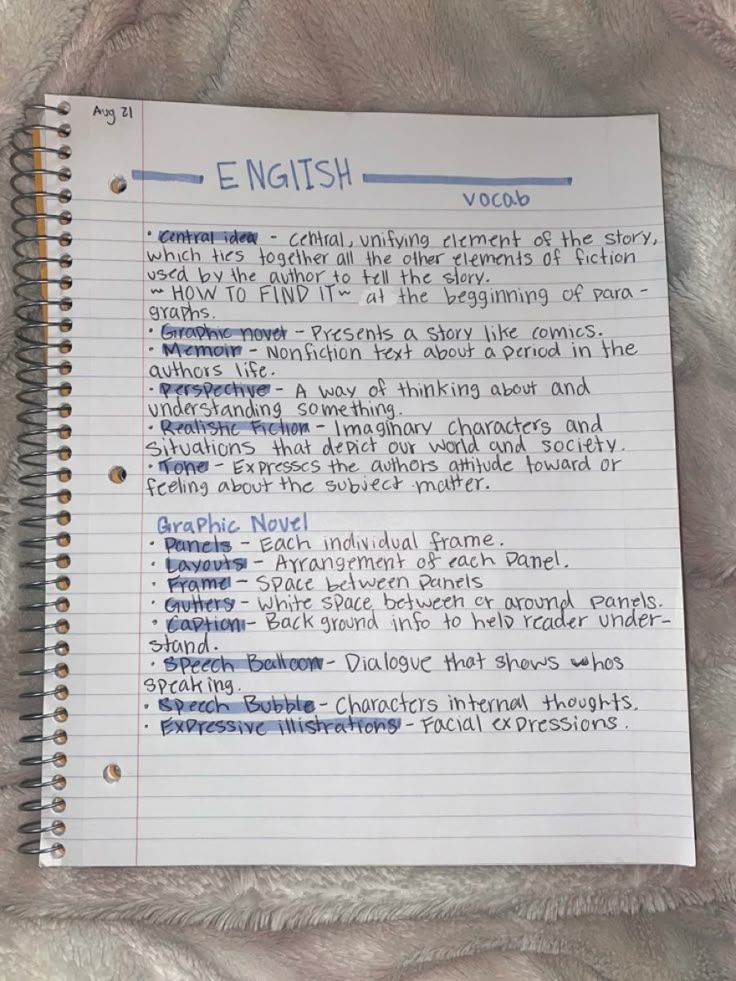 Aug 21
ENGlISH
vocab
• Central idea - central, unifying element of the story,
which ties together all the other elements of fiction
used by the author to tell the story.
~ HOW TO FIND IT ~ at the begginning of para-
graphs.
• Graphic novel - Presents a story like comics.
• Memoir - Nonfiction text about a period in the
authors life.
• Perspective - A way of thinking about and
understanding something.
• Realistic Fiction - Imaginary characters and
situations that depict our world and society.
• Tone - Expresses the authors attitude toward or
feeling about the subject matter.
Graphic Novel
• Panels - Each individual frame.
• Layouts - Arrangement of each Panel.
• Frame - Space between Panels
• Gutters - White space between or around panels.
• Caption - Back ground info to help reader under-
stand.
• Speech Balloon - Dialogue that shows whos
speaking.
• Speech Bubble - Characters internal thoughts.
• Expressive illistrations - Facial expressions.